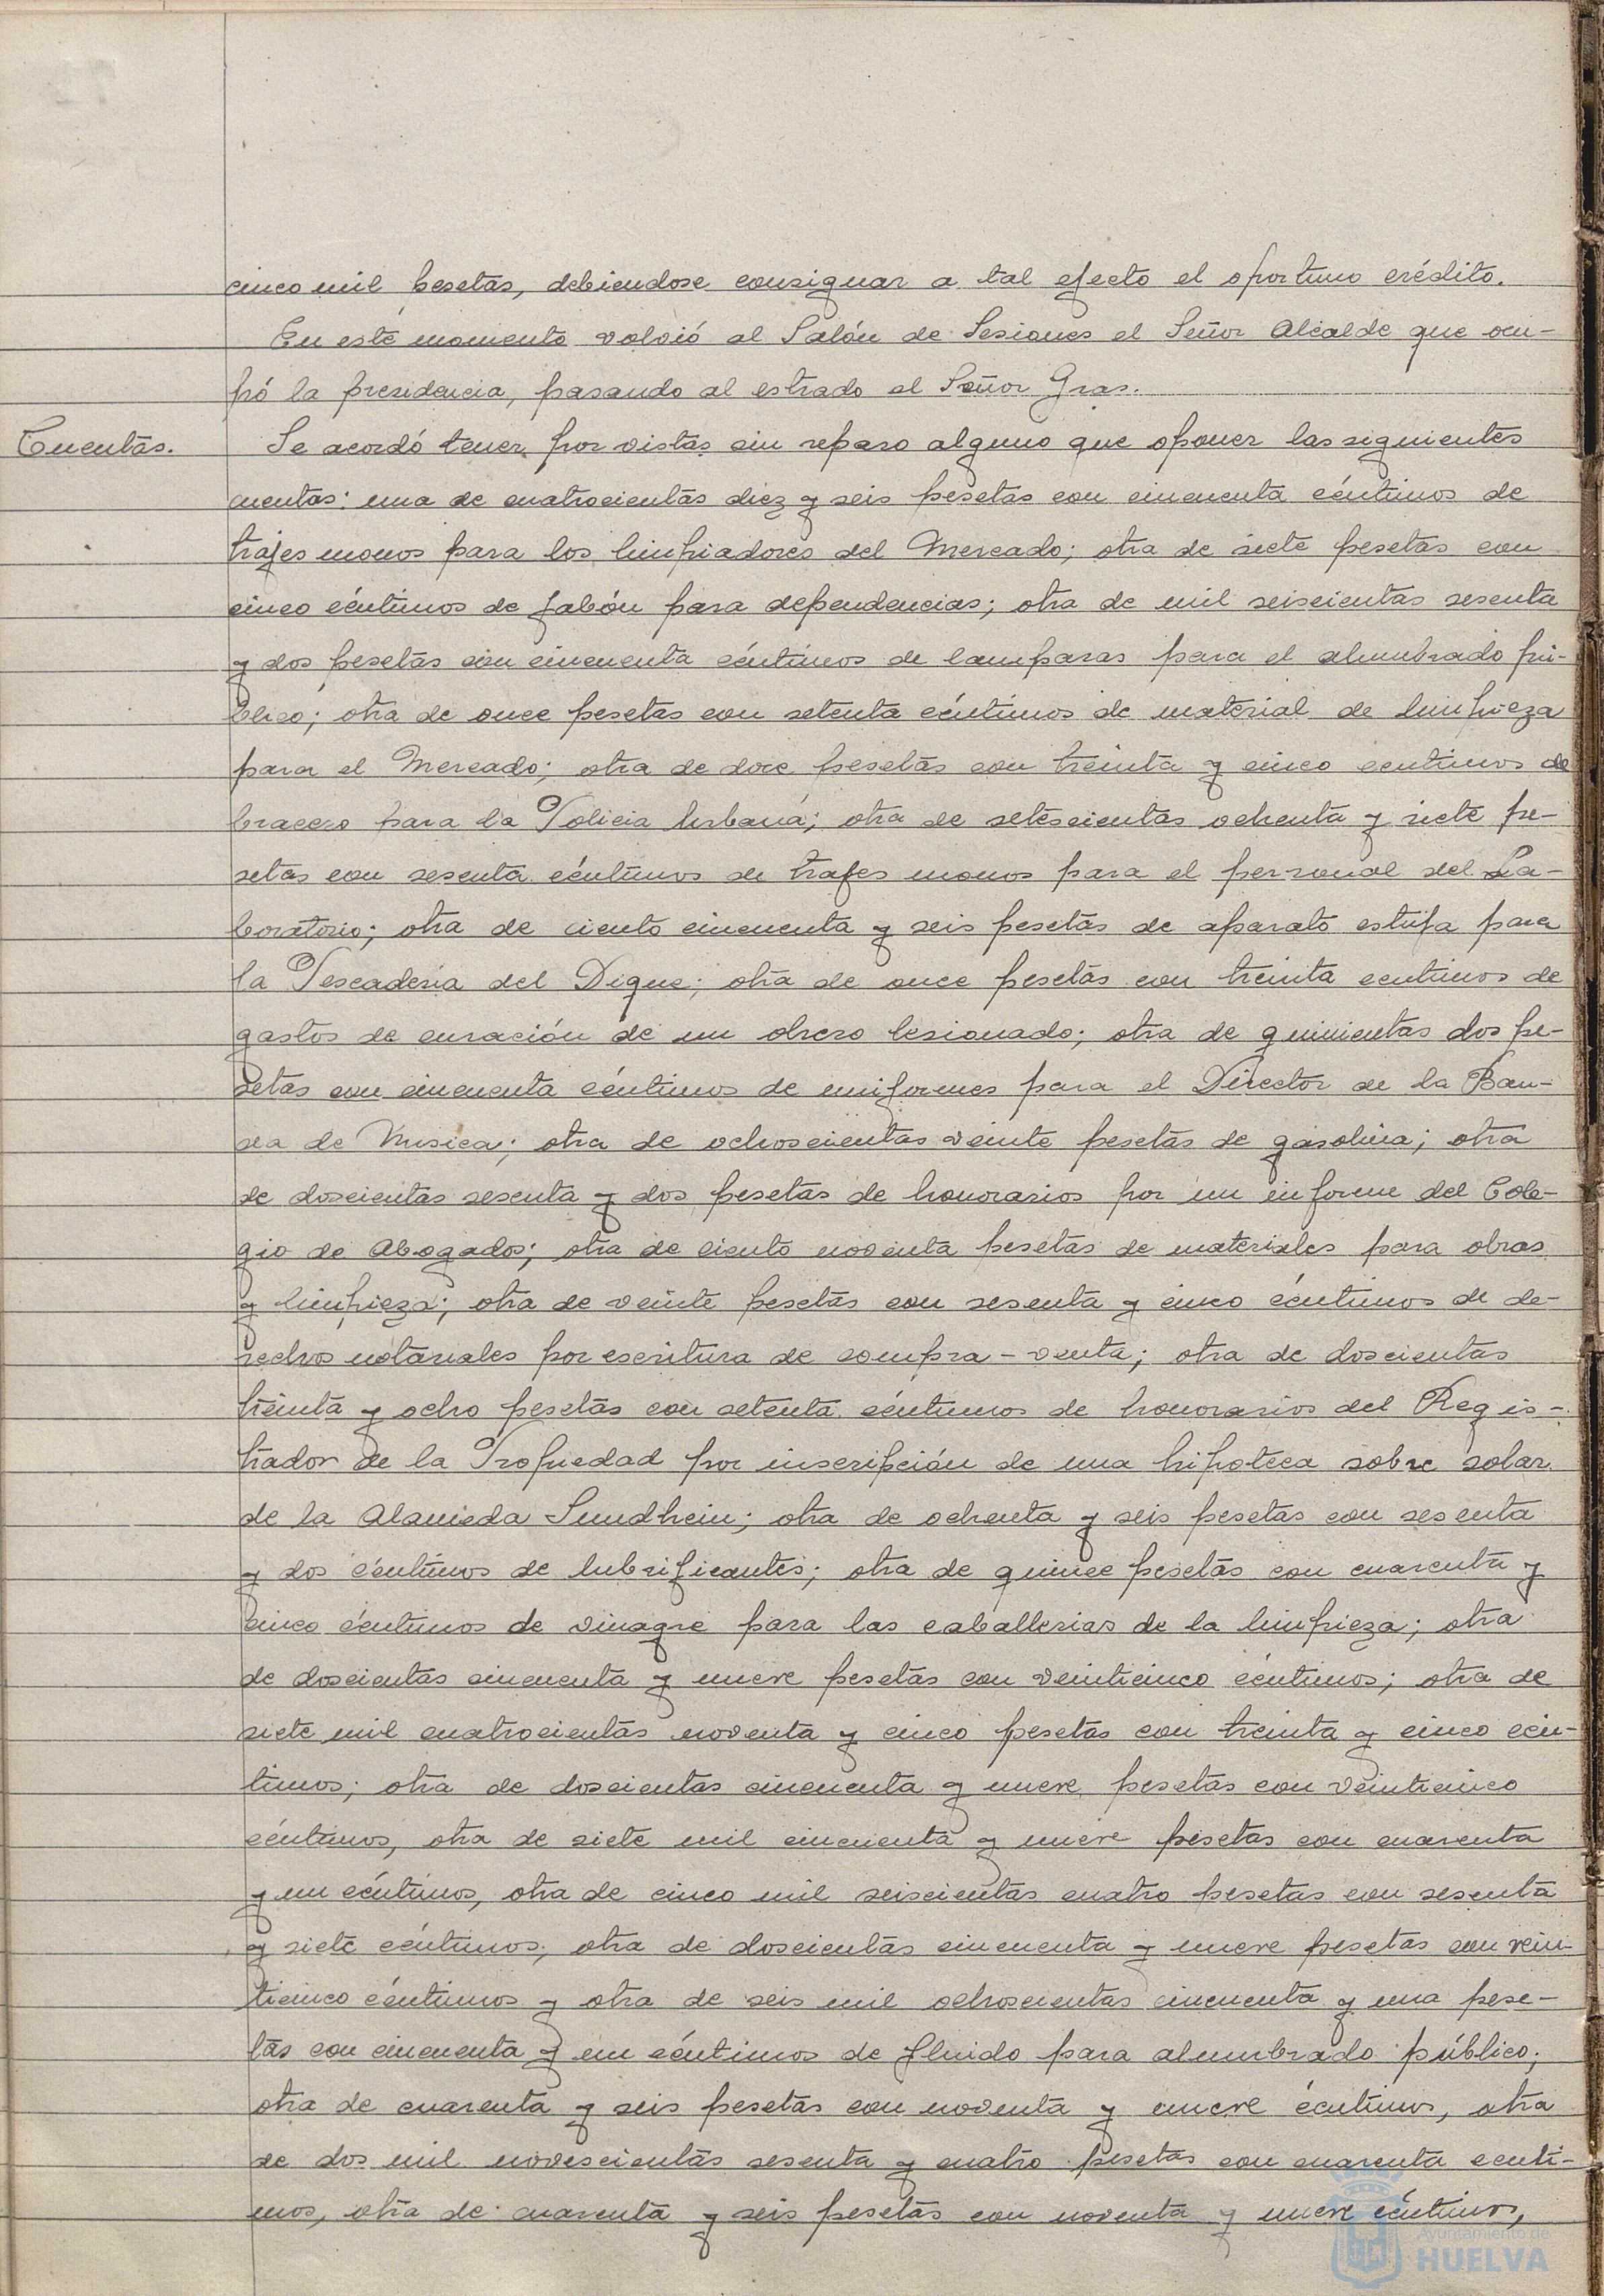 cinco mil pesetas, debiendose consignar a tal efecto el oportuno crédito.
En este momento volvió al Salón de Sesiones el Señor Alcalde que ocu-
pó la presidencia, pasando al estrado el Señor Gras.
Cuentas. Se acordó tener por vistas sin reparo alguno que oponer las siguientes
cuentas: una de cuatrocientas diez y seis pesetas con cincuenta céntimos de
trajes monos para los limpiadores del Mercado; otra de siete pesetas con
cinco céntimos de jabón para dependencias; otra de mil seiscientas sesenta
y dos pesetas con cincuenta céntimos de lamparas para el alumbrado pú-
blico; otra de once pesetas con setenta céntimos de material de limpieza
para el Mercado; otra de doce pesetas con treinta y cinco centimos de
bracero para la Policia Urbana; otra de setescientas ochenta y siete pe-
setas con sesenta céntimos de trajes monos para el personal del La-
boratorio; otra de ciento cincuenta y seis pesetas de aparato estufa para
la Pescaderia del Dique; otra de once pesetas con treinta centimos de
gastos de curación de un obrero lesionado; otra de quinientas dos pe-
setas con cincuenta céntimos de uniformes para el Director de la Ban-
da de Musica; otra de ochoscientas veinte pesetas de gasolina; otra
de doscientas sesenta y dos pesetas de honorarios por un informe del Cole-
gio de Abogados; otra de ciento noventa pesetas de materiales para obras
y limpieza; otra de veinte pesetas con sesenta y cinco céntimos de de-
rechos notariales por escritura de compra-venta; otra de doscientas
treinta y ocho pesetas con setenta céntimos de honorarios del Regis-
trador de la Propiedad por inscripción de una hipoteca sobre solar
de la Alameda Sundhein; otra de ochenta y seis pesetas con sesenta
y dos céntimos de lubrificantes; otra de quince pesetas con cuarenta y
cinco céntimos de vinagre para las caballerias de la limpieza; otra
de doscientas cincuenta y nueve pesetas con veinticinco céntimos; otra de
siete mil cuatrocientas noventa y cinco pesetas con treinta y cinco cén-
timos; otra de doscientas cincuenta y nueve pesetas con veinticinco
céntimos, otra de siete mil cincuenta y nueve pesetas con cuarenta
y un céntimos, otra de cinco mil seiscientas cuatro pesetas con sesenta
y siete céntimos; otra de doscientas cincuenta y nueve pesetas con vein-
ticinco céntimos y otra de seis mil ochoscientas cincuenta y una pese-
tas con cincuenta y un céntimos de fluido para alumbrado público;
otra de cuarenta y seis pesetas con noventa y nueve céntimos, otra
de dos mil novescientas sesenta y cuatro pesetas con cuarenta centi-
mos, otra de cuarenta y seis pesetas con noventa y nueve céntimos,
Ayuntamiento de
HUELVA